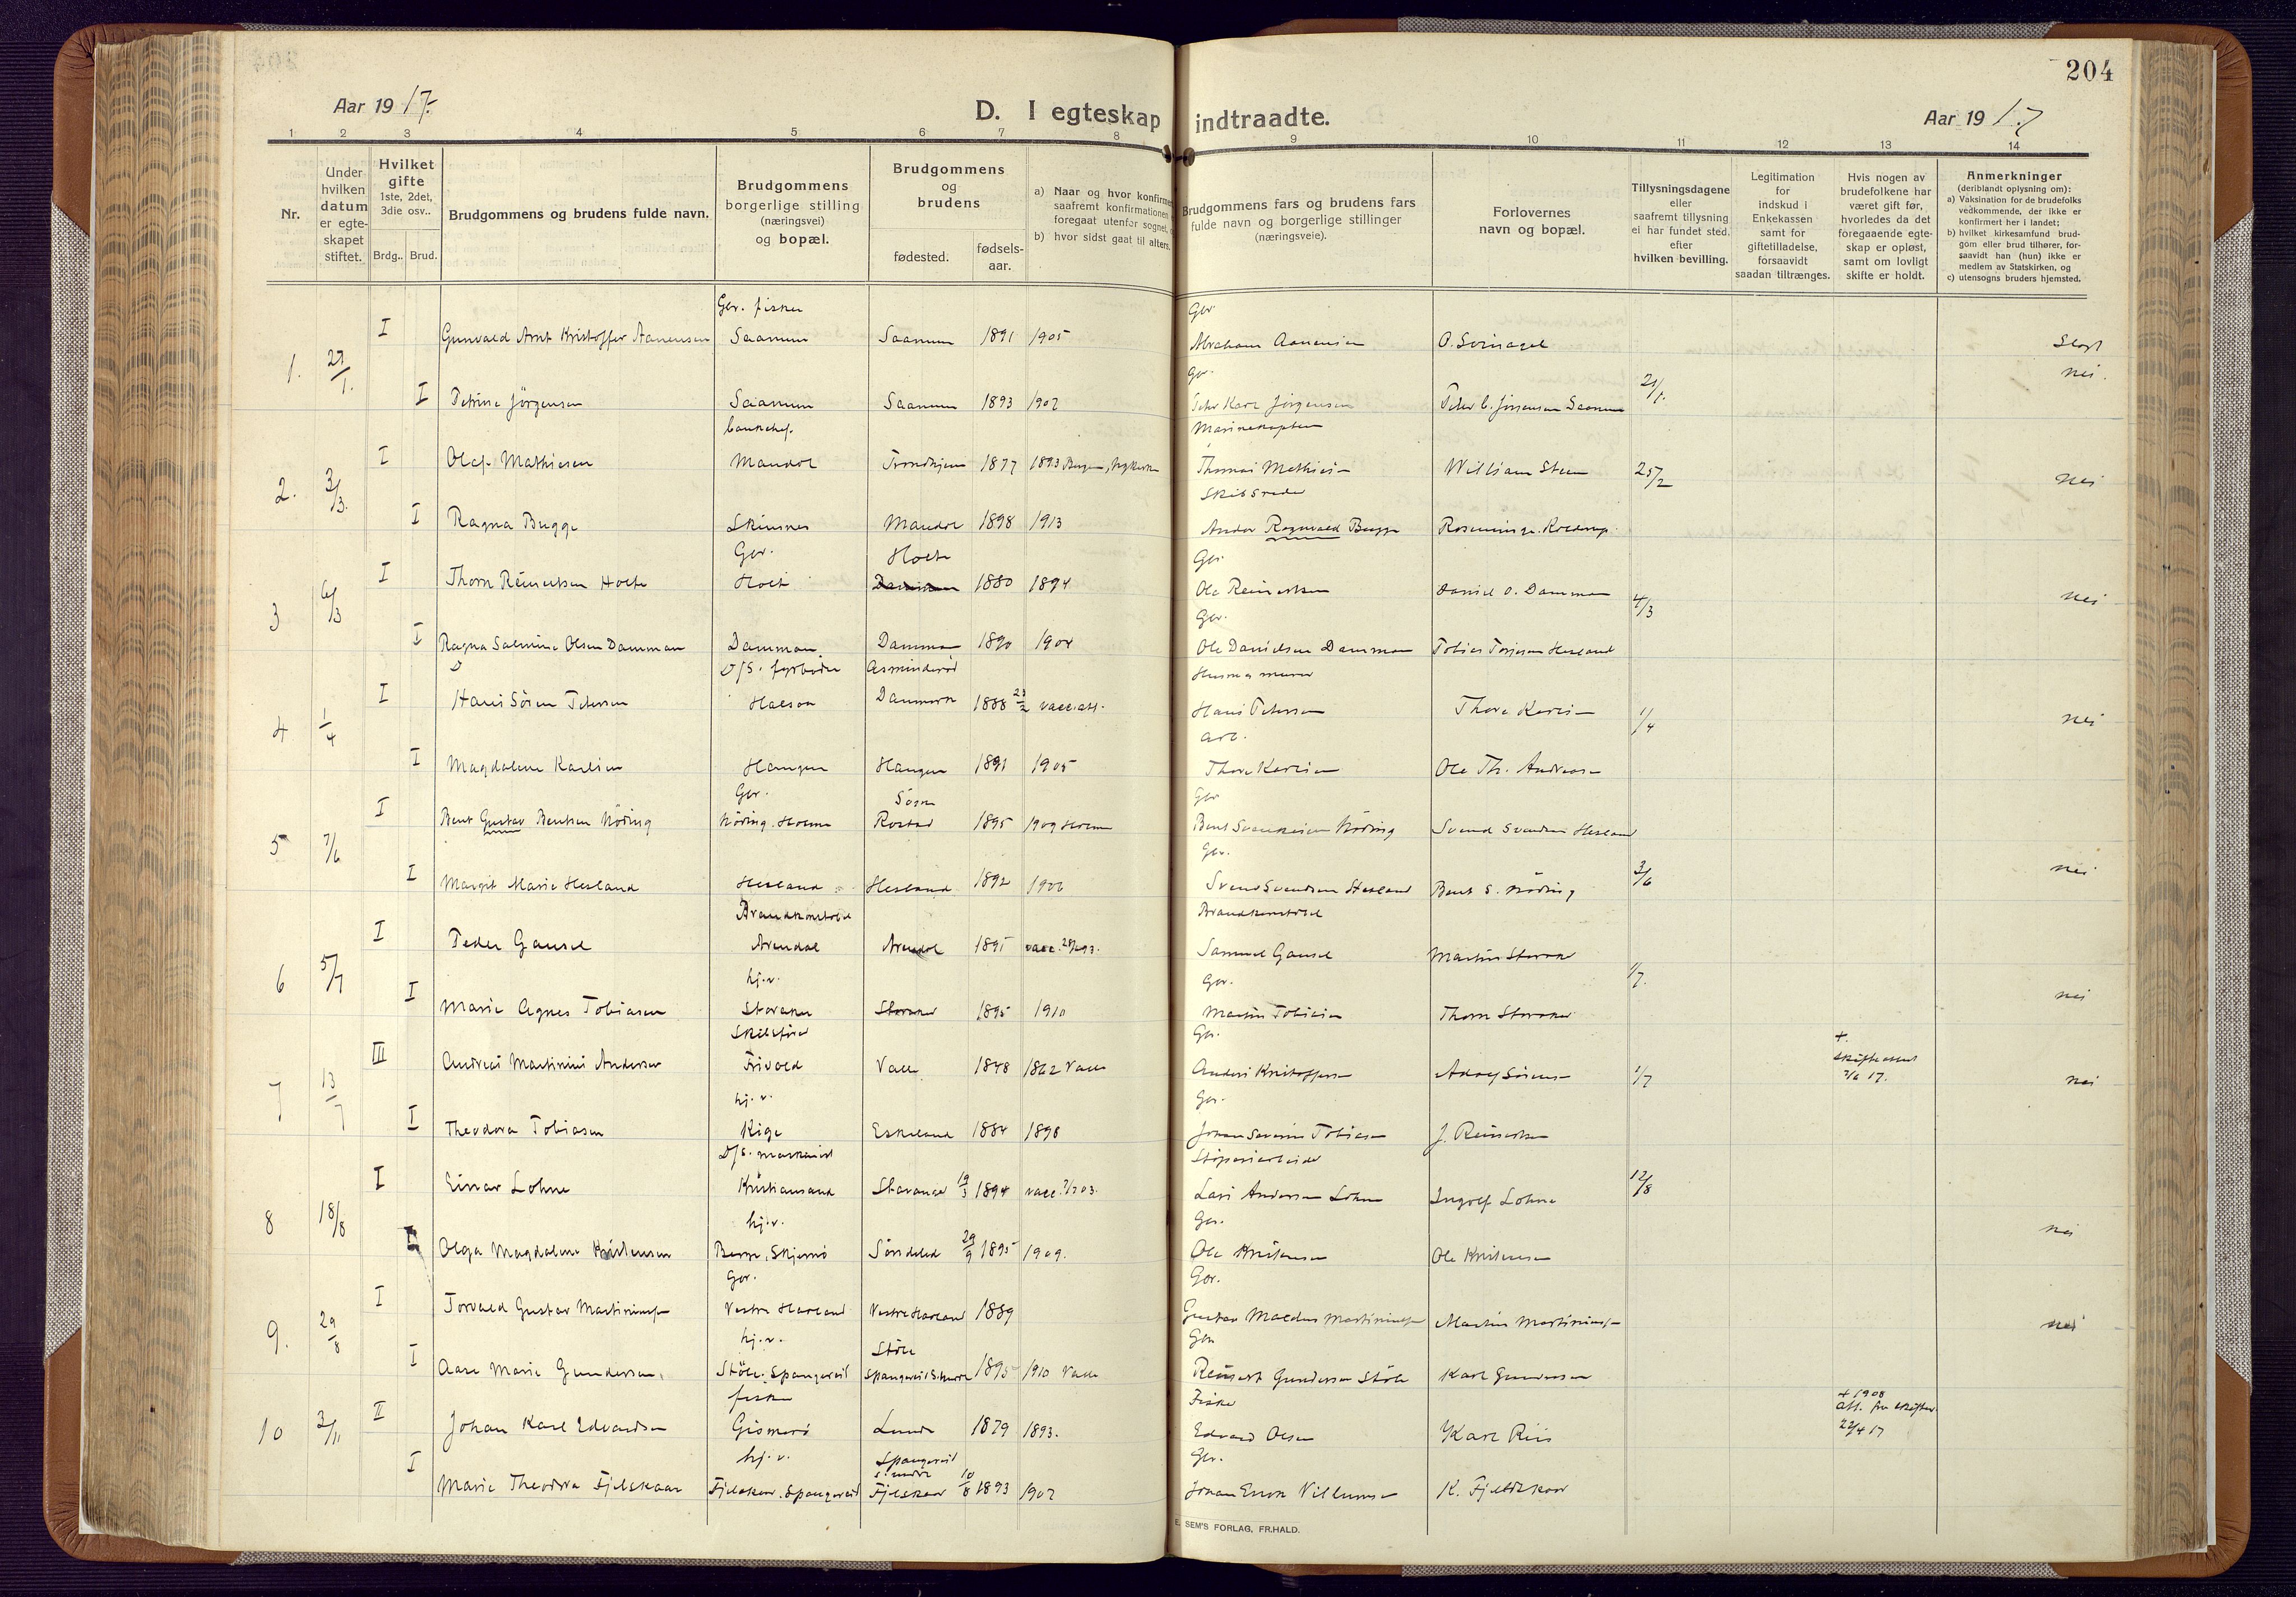 204
Aar 1917.
D. I egteskap indtraadte.
Aar 1917
1 2 3 4 5 6 7 8 9 10 11 12 13 14
Nr.
Under hvilken datum er egte- skapet stiftet.
Hvilket gifte 1ste, 2det, 3die osv..
Brdg.. Brud.
Brudgommens og brudens fulde navn.
Brudgommens borgerlige stilling (næringsvei) og bopæl.
Brudgommens og brudens
fødested.
fødsels- aar.
a) Naar og hvor
saafremt konfirmationen
foregaaet utenfor sognet,
b) hvor sidst gaat til alters.
Brudgommens fars og brudens fars fulde navn og borgerlige stillinger (næringsveie).
Forlovernes navn og bopæl.
Tillysningsdagene eller saafremt tillysning ei har fundet sted. efter hvilken bevilling.
Legitimation for indskud i Enkekassen samt for giftetilladelse, forsaavidt saadan tiltrænges.
Hvis nogen av brudefolkene har været gift før, hvorledes da det foregaaende egte- skap er opløst, samt om lovligt skifte er holdt.
Anmerkninger
(deriblandt oplysning om):
a) Vaksination for de brudefolks vedkommende, der ikke er konfirmert her i landet;
b) hvilket kirkesamfund brud- gom eller brud tilhører, for- saavidt han (hun) ikke er medlem av Statskirken, og
c) utensogns bruders hjemsted.
Gbr. fisker Gbr
I Gunvald Arnt Kristoffer Aanensen Saanum Saanum 1891 1905 Abraham Aanensen O. Svinagel
1. 29/1. Gbr. nei.
I Petrine Jörgensen Saanum Saanum 1893 1907 Peder Karl Jörgensen Peder C. Jörgensen Saanum 21/1.
Marinekaptein
I Olaf Mathiesen Mandal Trondhjem 1877 1893 Bergen, Nykirken Thomas Mathiesen William Steen 25/2
2. 3/3. Skibsreder nei
I Ragna Bugge Skinsnes Mandal 1898 1913 Ragnvald Bugge
Gbr. Holte Gbr
I Thorn Reinertsen Holte Holt 1880 1894 Ole Reinertsen Daniel O. Damman
3 6/3 Gbr. 4/3 nei
I Ragna Salmine Olsen Damman Damman Damman 1890 1904 Ole Danielsen Damman Tobias Torjesen Hesland
D/S. fyrböder Asminderöd
I Hans Sören Petersen Halsön Danmark 1888 23/2 vacc.att. Hans Petersen Thore Karlsen 1/4
4 1/4 arb. nei
I Magdalene Karlsen Haugen Haugen 1891 1905 Thore Karlsen Ole Th. Andreasen
Gbr. Sögne Gbr
I Bent Gustav Bentsen Nöding Nöding. Holme Rostad 1895 1909 Holme Bent Svendsen Nöding Svend Svendsen Hesland
5 7/6 Gbr. 3/6 nei
I Margit Marie Hesland Hesland Hesland 1892 1906 Svend Svendsen Hesland Bent S. Nöding
Brandkonstabel Brandkonstabel
I Peder Gausel Arendal Arendal 1895 Samuel Gausel Martin Storaker
6 5/7 hj.v. Gbr. 1/7. nei
I Marie Agnes Tobiasen Storaker Storaker 1895 1910 Martin Tobiasen Thorn Storaker
Skibsförer Gbr. +.
III Andreas Martinius Andersen Frivold Valle 1848 1862 Valle Anders Kristoffersen Adolf Sörensen 1/7 skifteattest 2/6 17. nei
7 13/7 hj.v. Gbr.
I Theodora Tobiasen Kige Eskeland 1884 1898 Johan Severin Tobiasen J. Reinertsen
D/S. maskinist Stöperiarbeider
I Einar Lohne Kristiansand Stavanger 19/3 1894 vacc. Lars Andersen Lohne Ingolf Lohne 12/8
8 18/8 hj.v. Gbr. nei
I Olga Magdalene Kristensen Berge, Skjernö Söndeled 29/9 1895 1909. Ole Kristensen Ole Kristensen
Gbr. Gbr.
I Torvald Gustav Martiniussen Vestre Harland Vestre Harland 1889 Gustav Maldus Martiniussen Martin Martiniussen
9. 29/8 hj.v. Stöle Gbr nei
I Aase Marie Gundersen. Stöle. Spangereid Spangereid S. Undal 1895 1910 Valle Reinert Gundersen Stöle Karl Gundersen
fisker Fisker + 1908
II Johan Karl Edvardsen Gismerö Lunde 1879 1893. Edvard Olsen Karl Riis att. fra skifter. 22/4 17
10 3/11 hj.v. Spangereid S. Undal Gbr.
I Marie Theodora Fjelskaar Fjelskaar. Spangereid Fjelskaar 10/8 1893 1907 Johan Enok Villumsen K. Fjeldskaar
E. SEM'S FORLAG, FR.HALD.